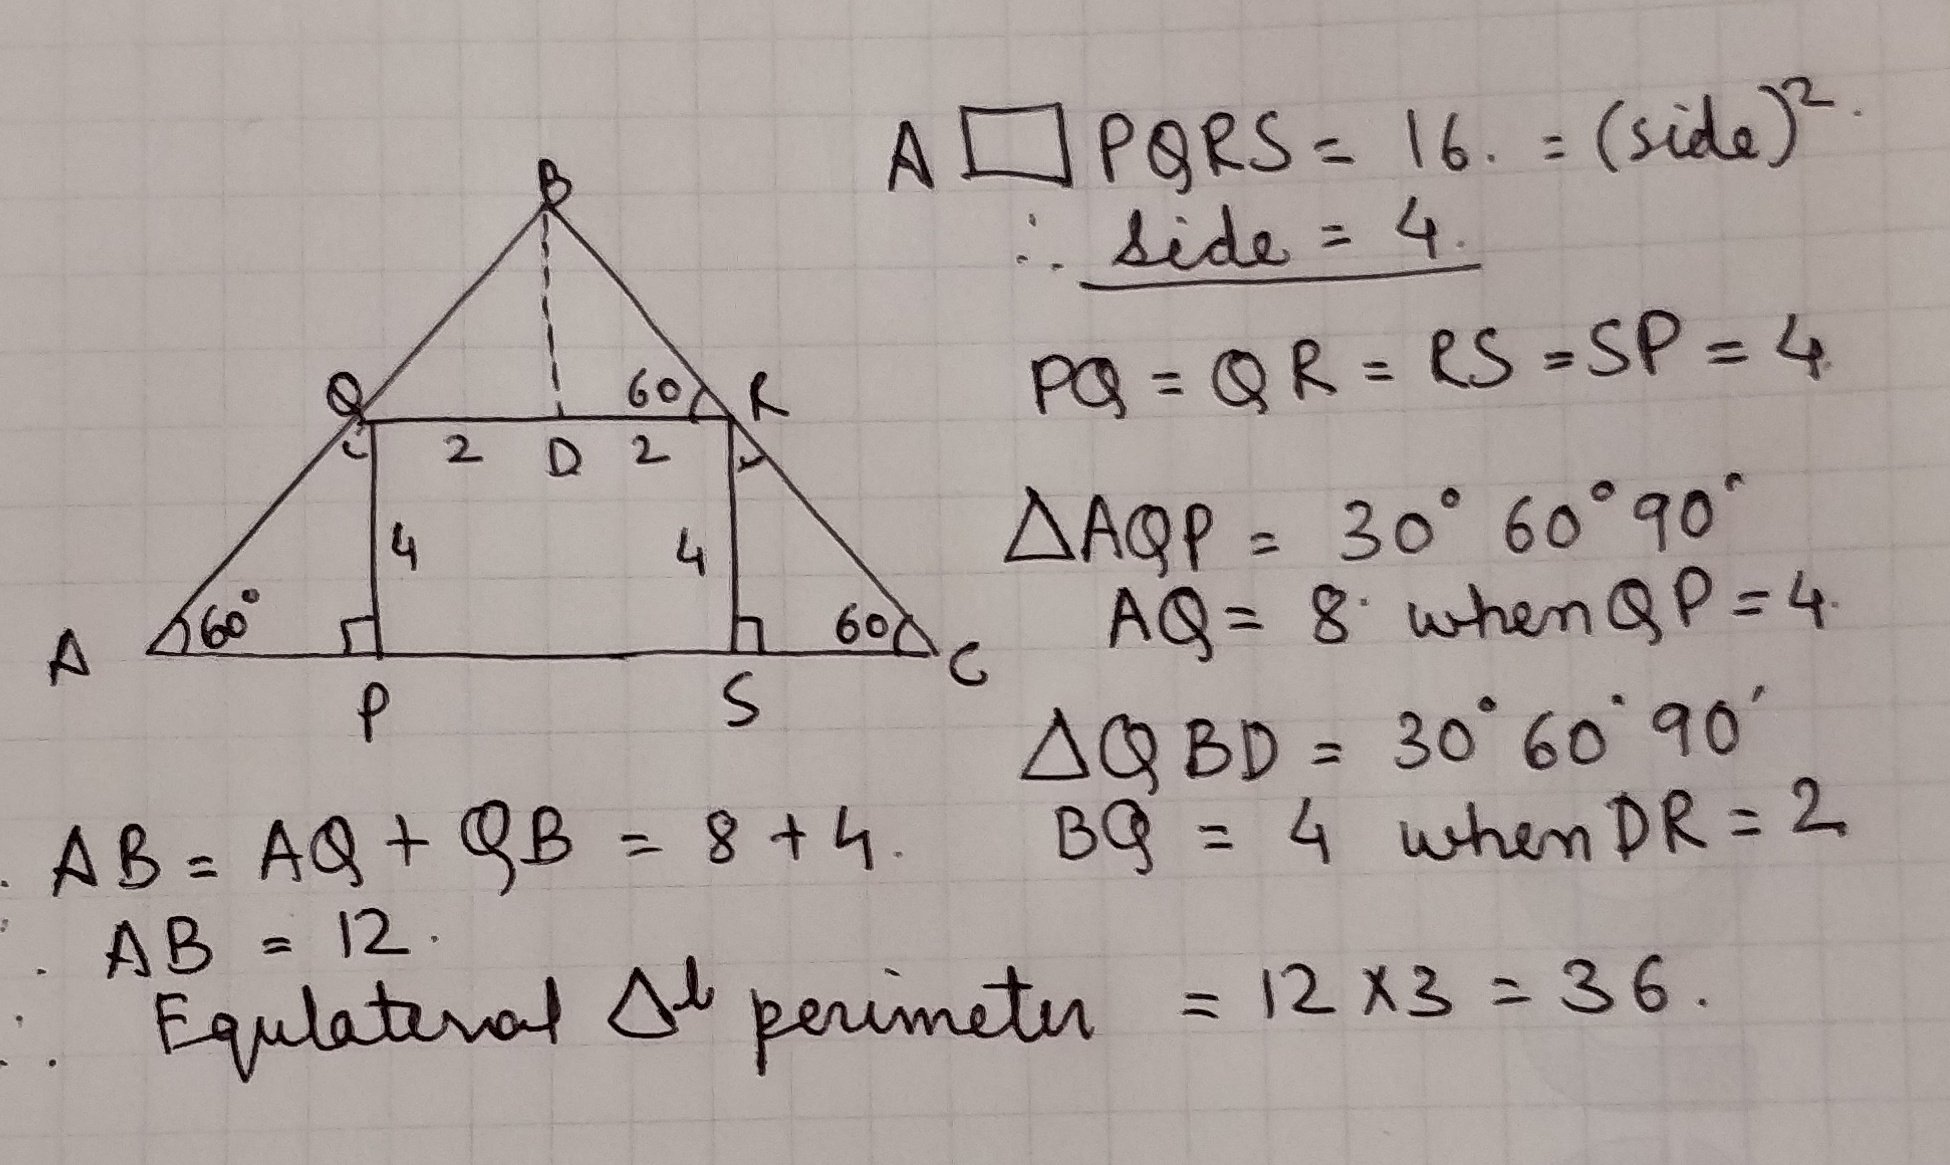 A □ PQRS = 16. = (side)².
∴ side = 4.
PQ = QR = RS = SP = 4
B
Q
60
R
2
D
2
4
4
A
60°
60
C
P
S
△AQP = 30° 60° 90°
AQ = 8. when QP = 4.
△QBD = 30° 60° 90°
BQ = 4 when DR = 2
. AB = AQ + QB = 8 + 4.
∴ AB = 12.
∴ Equlateral △l perimeter = 12 x 3 = 36.